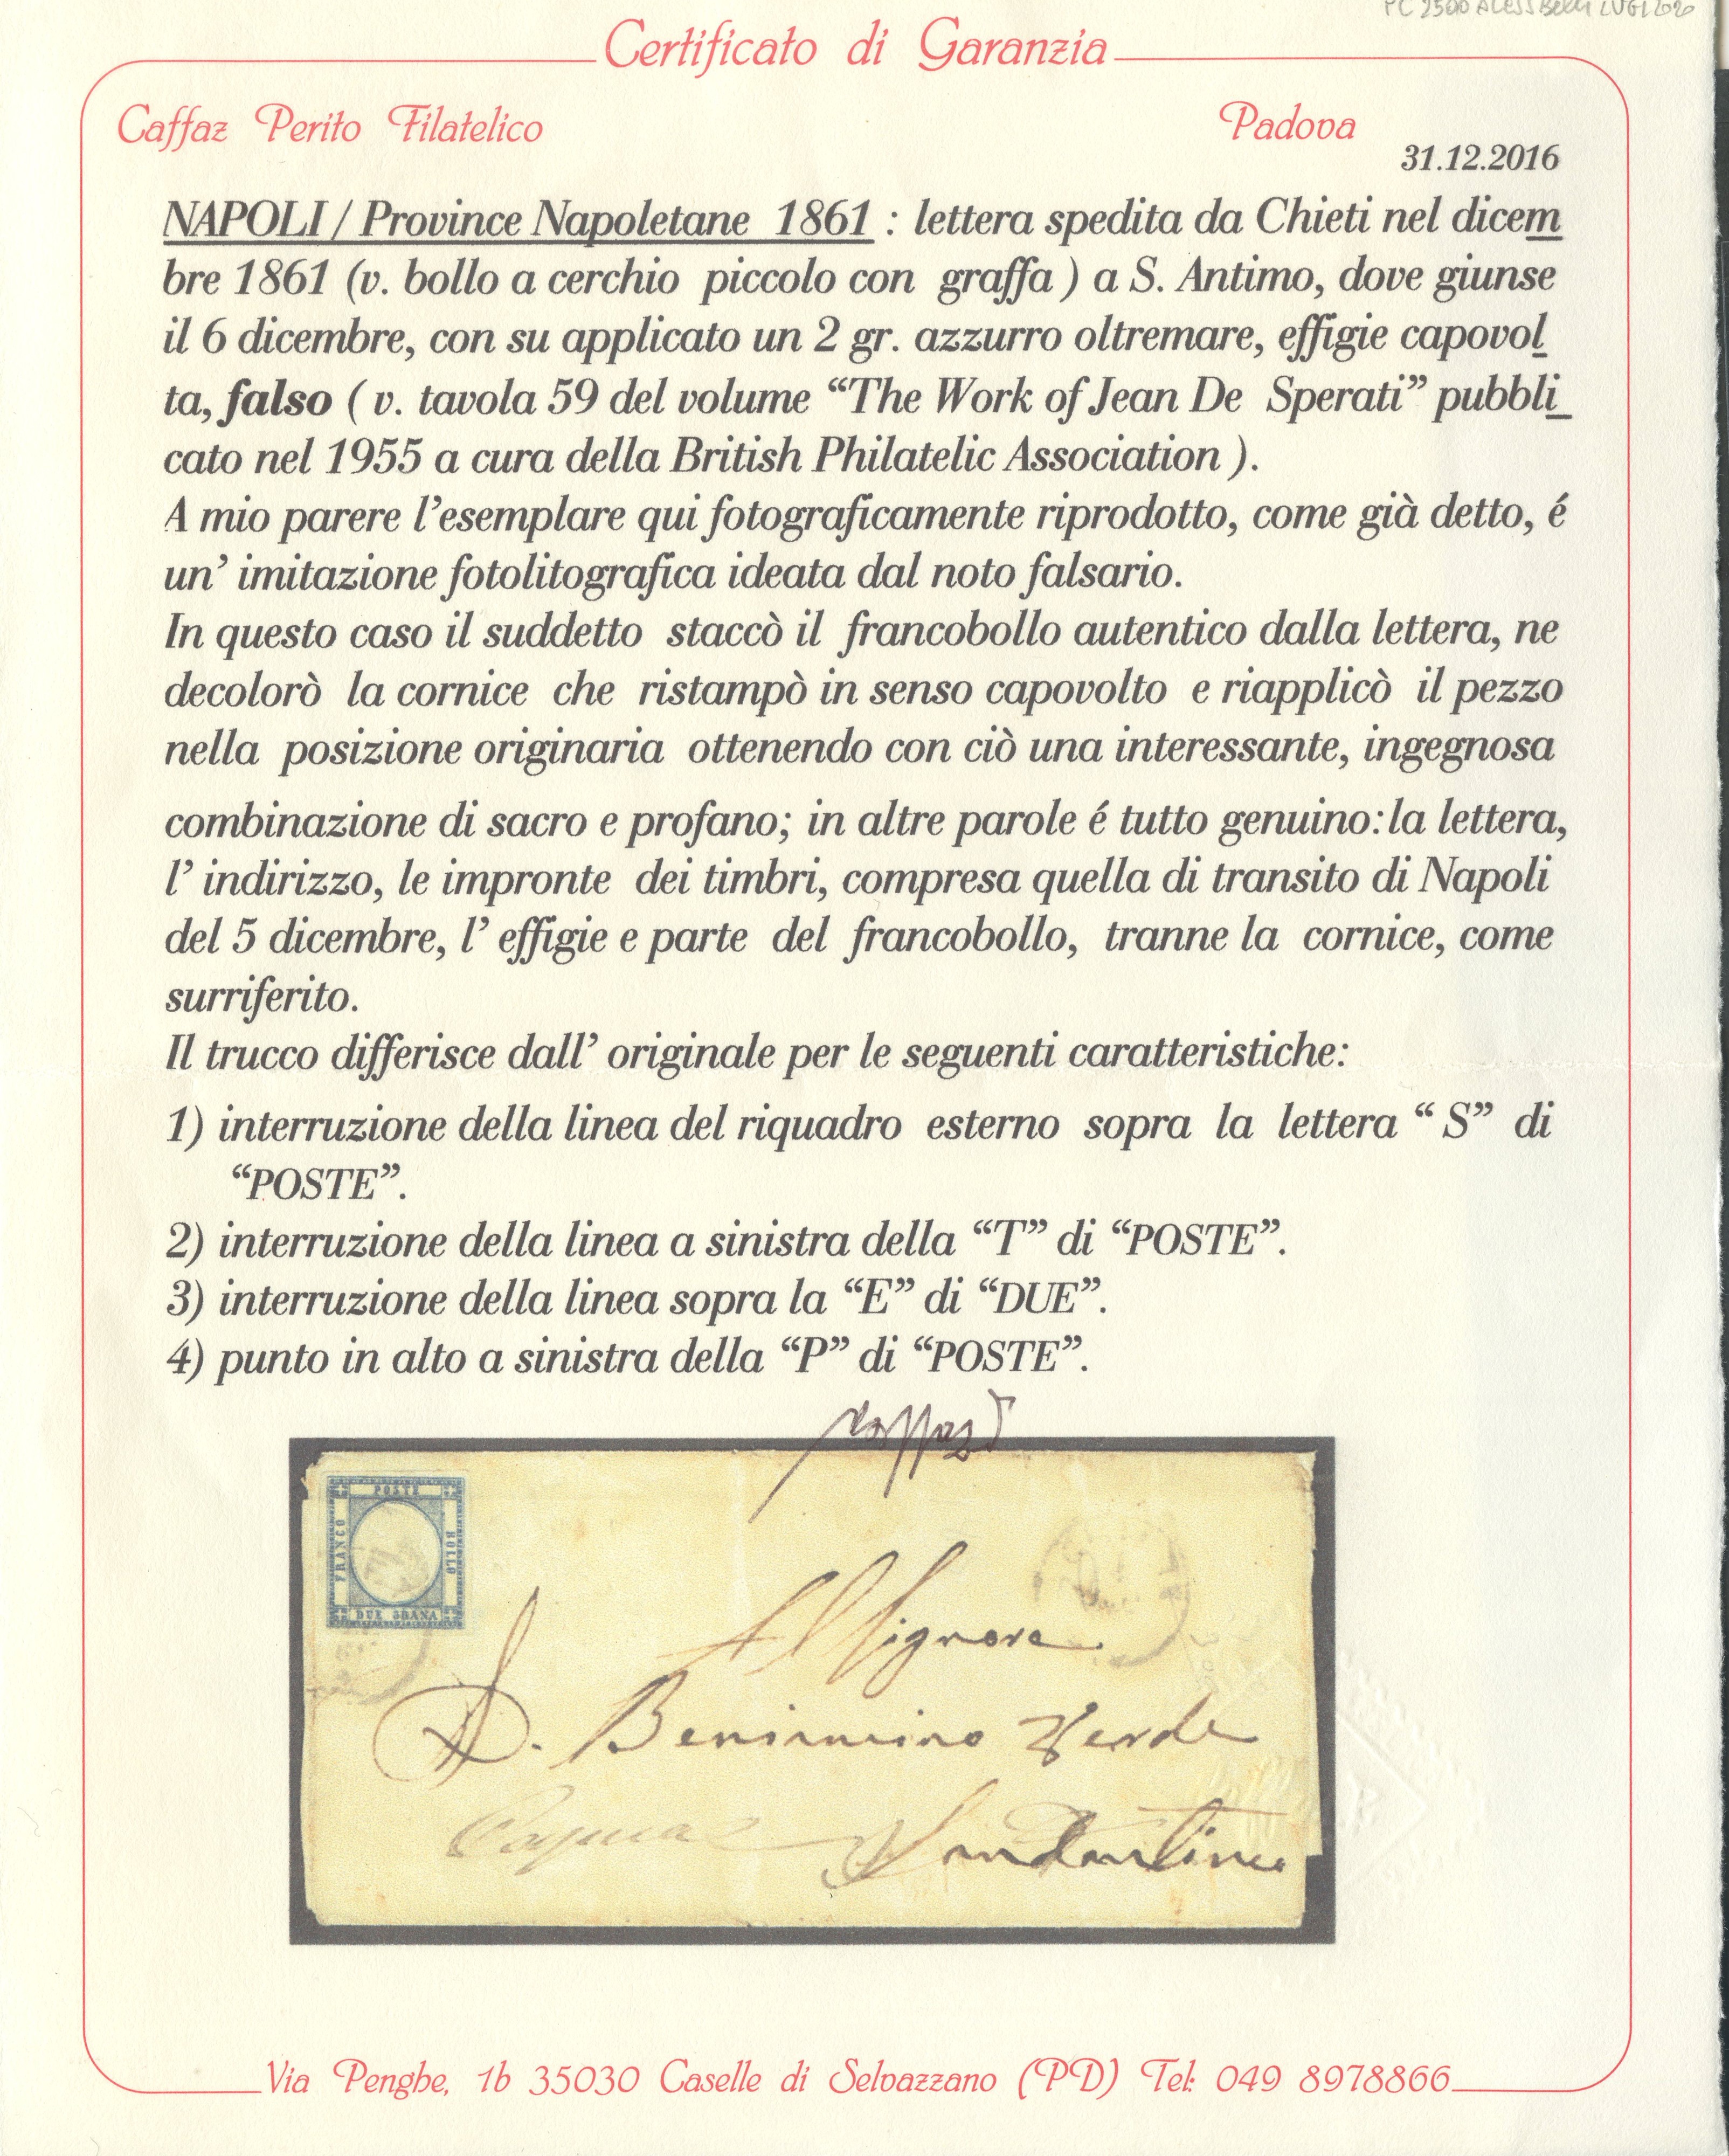 PC 2500
Certificato di Garanzia
Caffaz Perito Filatelico
Padova
31.12.2016
NAPOLI / Province Napoletane 1861 : lettera spedita da Chieti nel dicem
bre 1861 (v. bollo a cerchio piccolo con graffa ) a S. Antimo, dove giunse
il 6 dicembre, con su applicato un 2 gr. azzurro oltremare, effigie capovol
ta, falso ( v. tavola 59 del volume “The Work of Jean De Sperati” pubbli
cato nel 1955 a cura della British Philatelic Association ).
A mio parere l’esemplare qui fotograficamente riprodotto, come già detto, é
un’ imitazione fotolitografica ideata dal noto falsario.
In questo caso il suddetto staccò il francobollo autentico dalla lettera, ne
decolorò la cornice che ristampò in senso capovolto e riapplicò il pezzo
nella posizione originaria ottenendo con ciò una interessante, ingegnosa
combinazione di sacro e profano; in altre parole é tutto genuino: la lettera,
l’ indirizzo, le impronte dei timbri, compresa quella di transito di Napoli
del 5 dicembre, l’ effigie e parte del francobollo, tranne la cornice, come
surriferito.
Il trucco differisce dall’ originale per le seguenti caratteristiche:
1) interruzione della linea del riquadro esterno sopra la lettera “ S” di
“POSTE”.
2) interruzione della linea a sinistra della “T” di “POSTE”.
3) interruzione della linea sopra la “E” di “DUE”.
4) punto in alto a sinistra della “P” di “POSTE”.
POSTE
FRANCO
BOLLO
DUE GRANA
Al Signore
D. Beniamino Verde
Capua
Via Penghe, 1b 35030 Caselle di Selvazzano (PD) Tel: 049 8978866